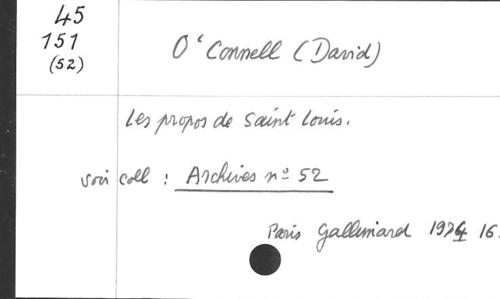 45
151
(52)
O'Connell (David)
Les propos de Saint Louis.
voir coll : Archives nº 52
Paris Gallimard 1974 16